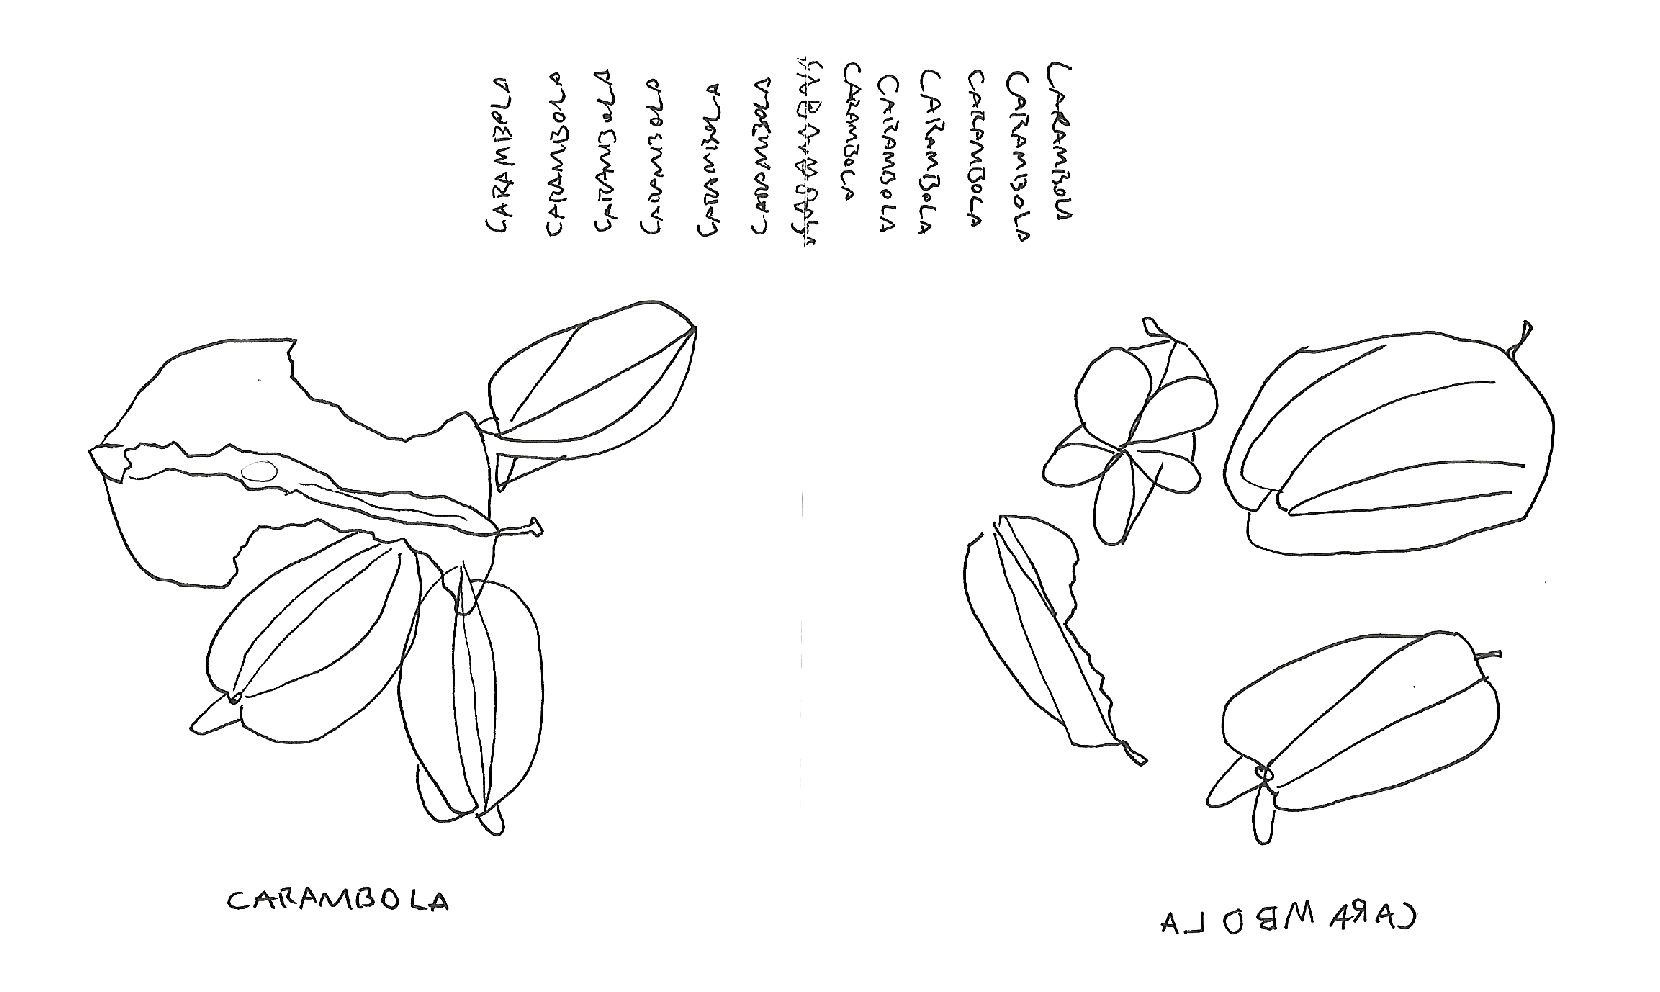 CARAMBOLA
CARAMBOLA
CARAMBOLA
CARAMBOLA
CARAMBOLA
CARAMBOLA
CARAMBOLA
CARAMBOLA
CARAMBOLA
CARAMBOLA
CARAMBOLA
CARAMBOLA
CARAMBOLA
CARAMBOLA